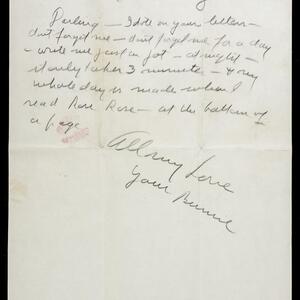 Darling — I dote on your letters —
don't forget me — don't forget me for a day
— write me just a jot — at night —
it only takes 3 minutes — & my
whole day is made when I
read Rose Rose — at the bottom of
a page
All my Love
Your Bunnie